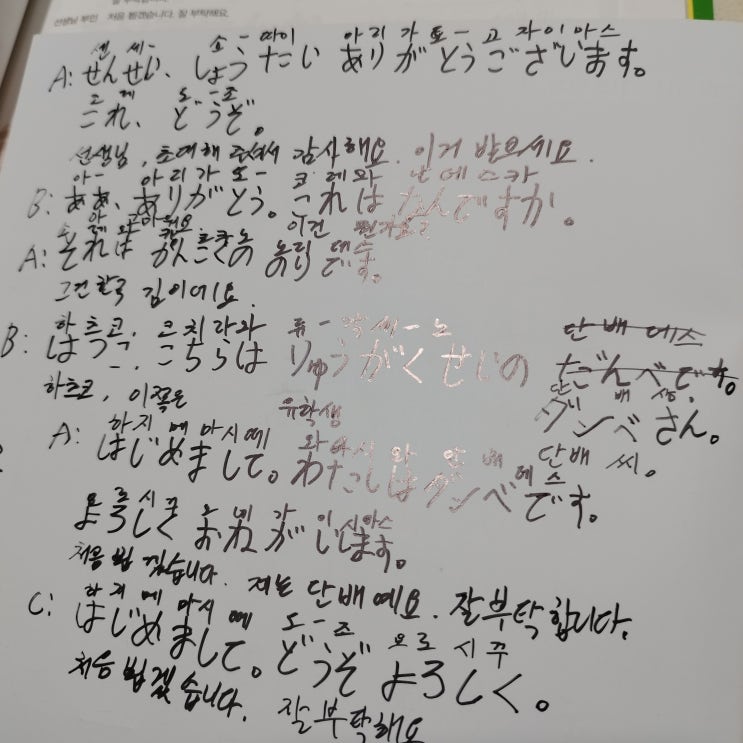 선생님 부인 처음 뵙겠습니다. 잘 부탁해요.
센 세- 쇼-따이 아리가토-고자이마스
A: せんせい、しょうたい ありがとうございます。
고레 도-조
これ、どうぞ。
선생님, 초대해 주셔서 감사해요. 이거 받으세요.
아- 아리가토- 코레와 난데스카
B: ああ、ありがとう。これは なんですか。
아 고마워요 이건 뭔가요?
소레와 캉코쿠노 노리데스
A: それは かんこくの のりです。
그건 한국 김이에요.
하츠코 코치라와 류-각세-노 단배데스
B: はつこ、こちらは りゅうがくせいの だんべです。
단배 상.
ダンベさん。
하츠코, 이쪽은 유학생 단배 씨.
하지메마시떼 와따시와 단배데스
A: はじめまして。わたしはダンベです。
요로시꾸 오네가이시마스
よろしく おねがいします。
처음 뵙겠습니다. 저는 단배예요. 잘부탁합니다.
하지메마시떼 도-조 요로시꾸
C: はじめまして。どうぞ よろしく。
처음 뵙겠습니다. 잘부탁해요